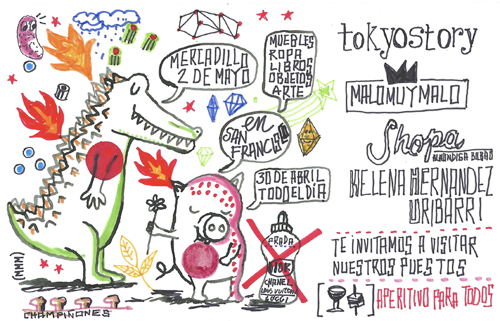 MERCADILLO
2 DE MAYO
MUEBLES
ROPA
LIBROS
OBJETOS
ARTE
en
SAN
FRANCISCO
30 DE ABRIL
TODO EL DIA
PRADA
DIOR
CHANEL
LOUIS VUITTON
GUCCI
(MMM)
CHAMPIÑONES
tokyostory
MALOMUYMALO
Shopa
ALHONDIGA BILBAO
HELENA HERNANDEZ
URIBARRI
TE INVITAMOS A VISITAR
NUESTROS PUESTOS
APERITIVO PARA TODOS